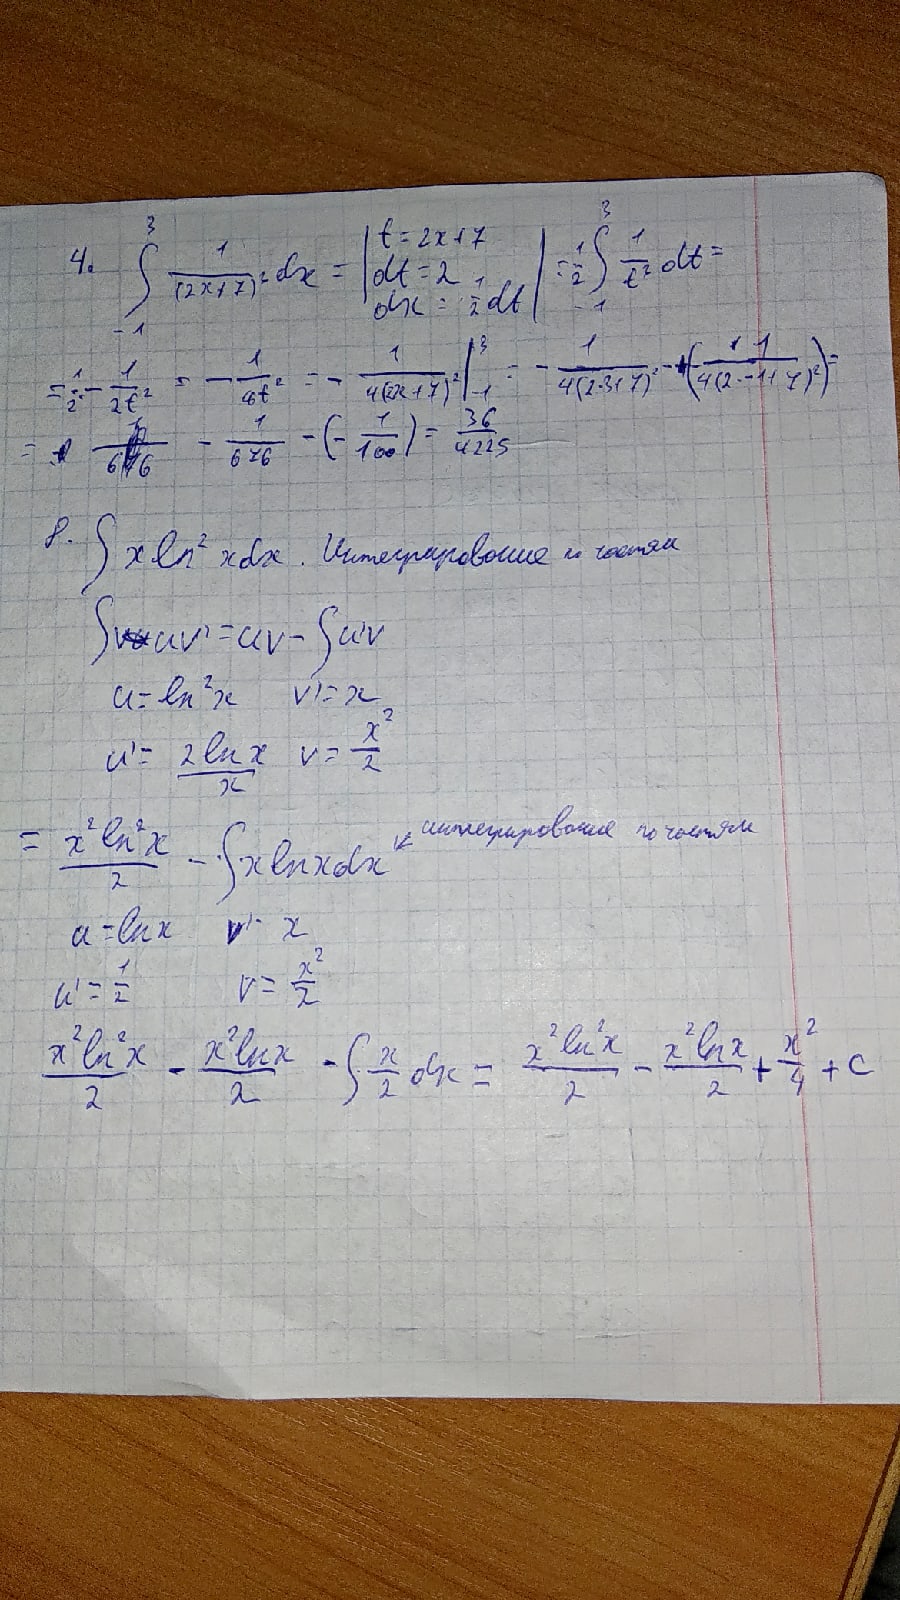 4. ∫₋₁³ 1/(2x+7)² dx = | t = 2x+7 dt = 2 dx = 1/2 dt | = 1/2 ∫₋₁³ 1/t² dt =
= 1/2 · - 1/2t² = - 1/4t² = - 1/4(2x+7)² |₋₁³ = - 1/4(2·3+7)² - (- 1/4(2·-1+7)²) =
= - 1/676 - (- 1/100) = 36/4225
8. ∫ x ln² x dx. Интегрирование по частям
∫ uv' = uv - ∫ u'v
u = ln² x v' = x
u' = 2 ln x/x v = x²/2
= x² ln² x/2 - ∫ x ln x dx ↙ интегрирование по частям
u = ln x v' = x
u' = 1/2 v = x²/2
x² ln² x/2 - x² ln x/2 - ∫ x/2 dx = x² ln² x/2 - x² ln x/2 + x²/4 + C